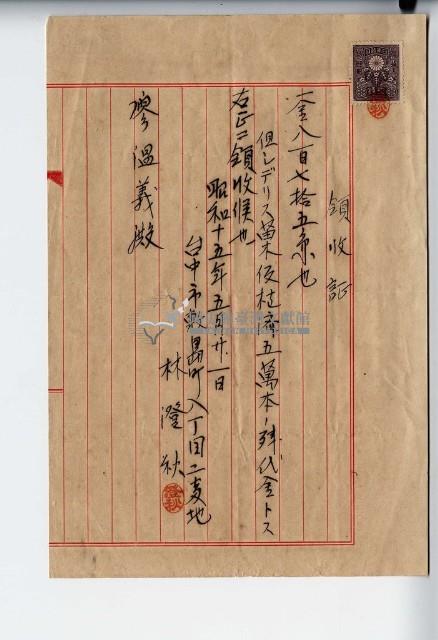 領收証
一金八百七拾五条也
但しデリス苗木仮植済五萬本ノ残代金トス
右正ニ領收候也
昭和十五年五月廿一日
台中市 町八丁目二麦地
林澄秋
廖温義殿
臺灣文獻館